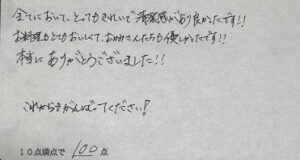 全てにおいて、とってもきれいで清潔感があり良かったです!!
お料理もとてもおいしくて、おかみさんたちも優しかったです!!
本当にありがとうございました!!
これからもがんばってください!
10点満点で 100 点